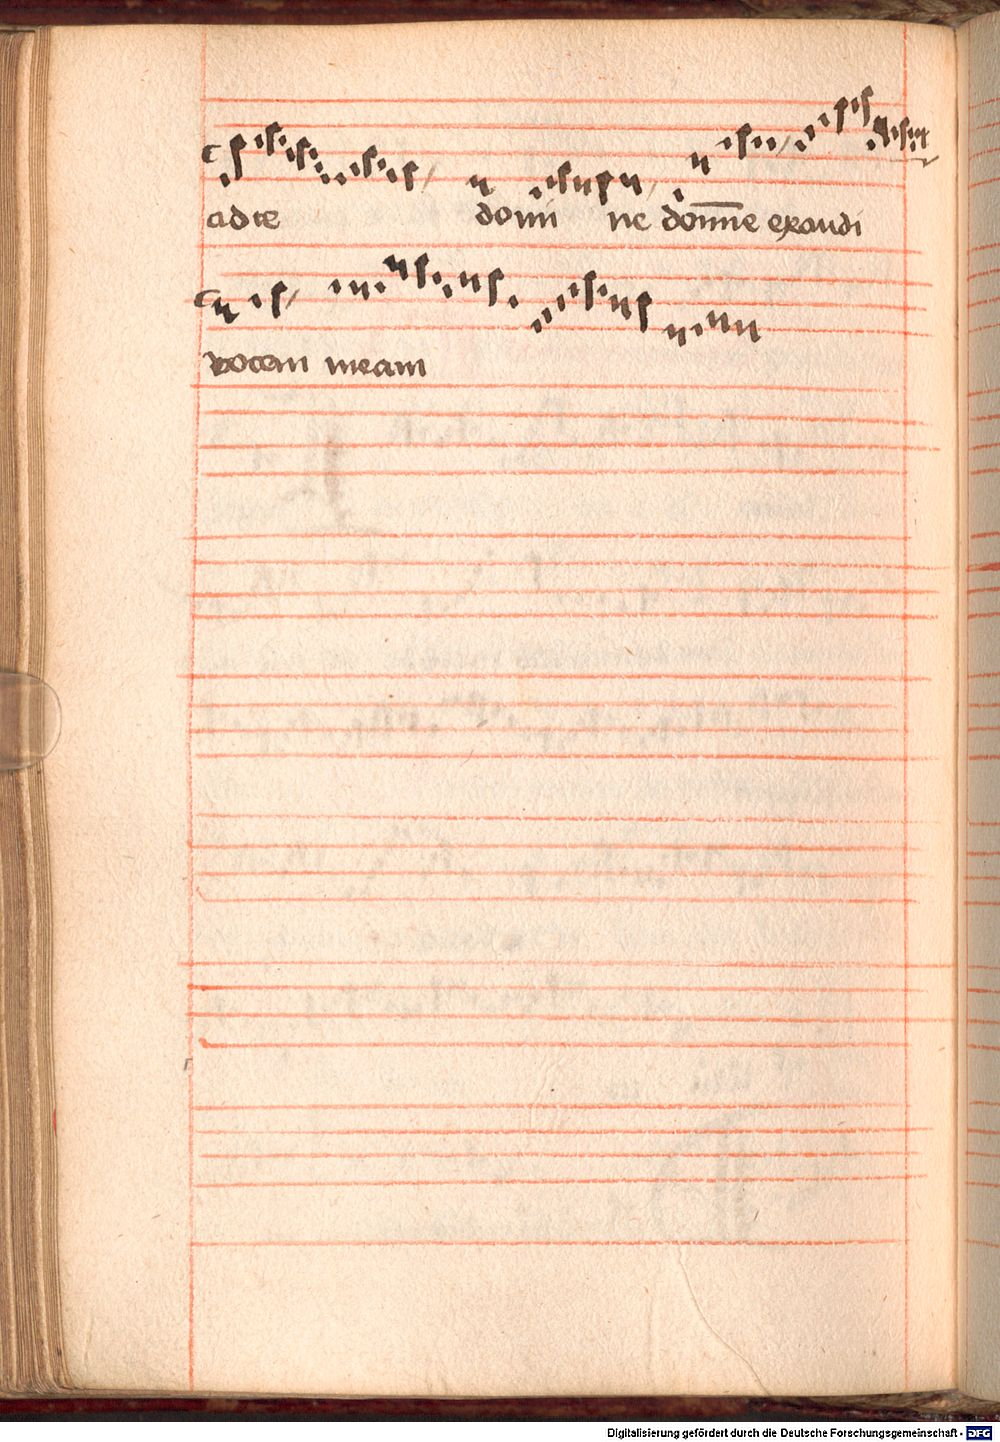 adte domi ne dom̅ne exaudi
vocem meam
Digitalisierung gefördert durch die Deutsche Forschungsgemeinschaft - DFG